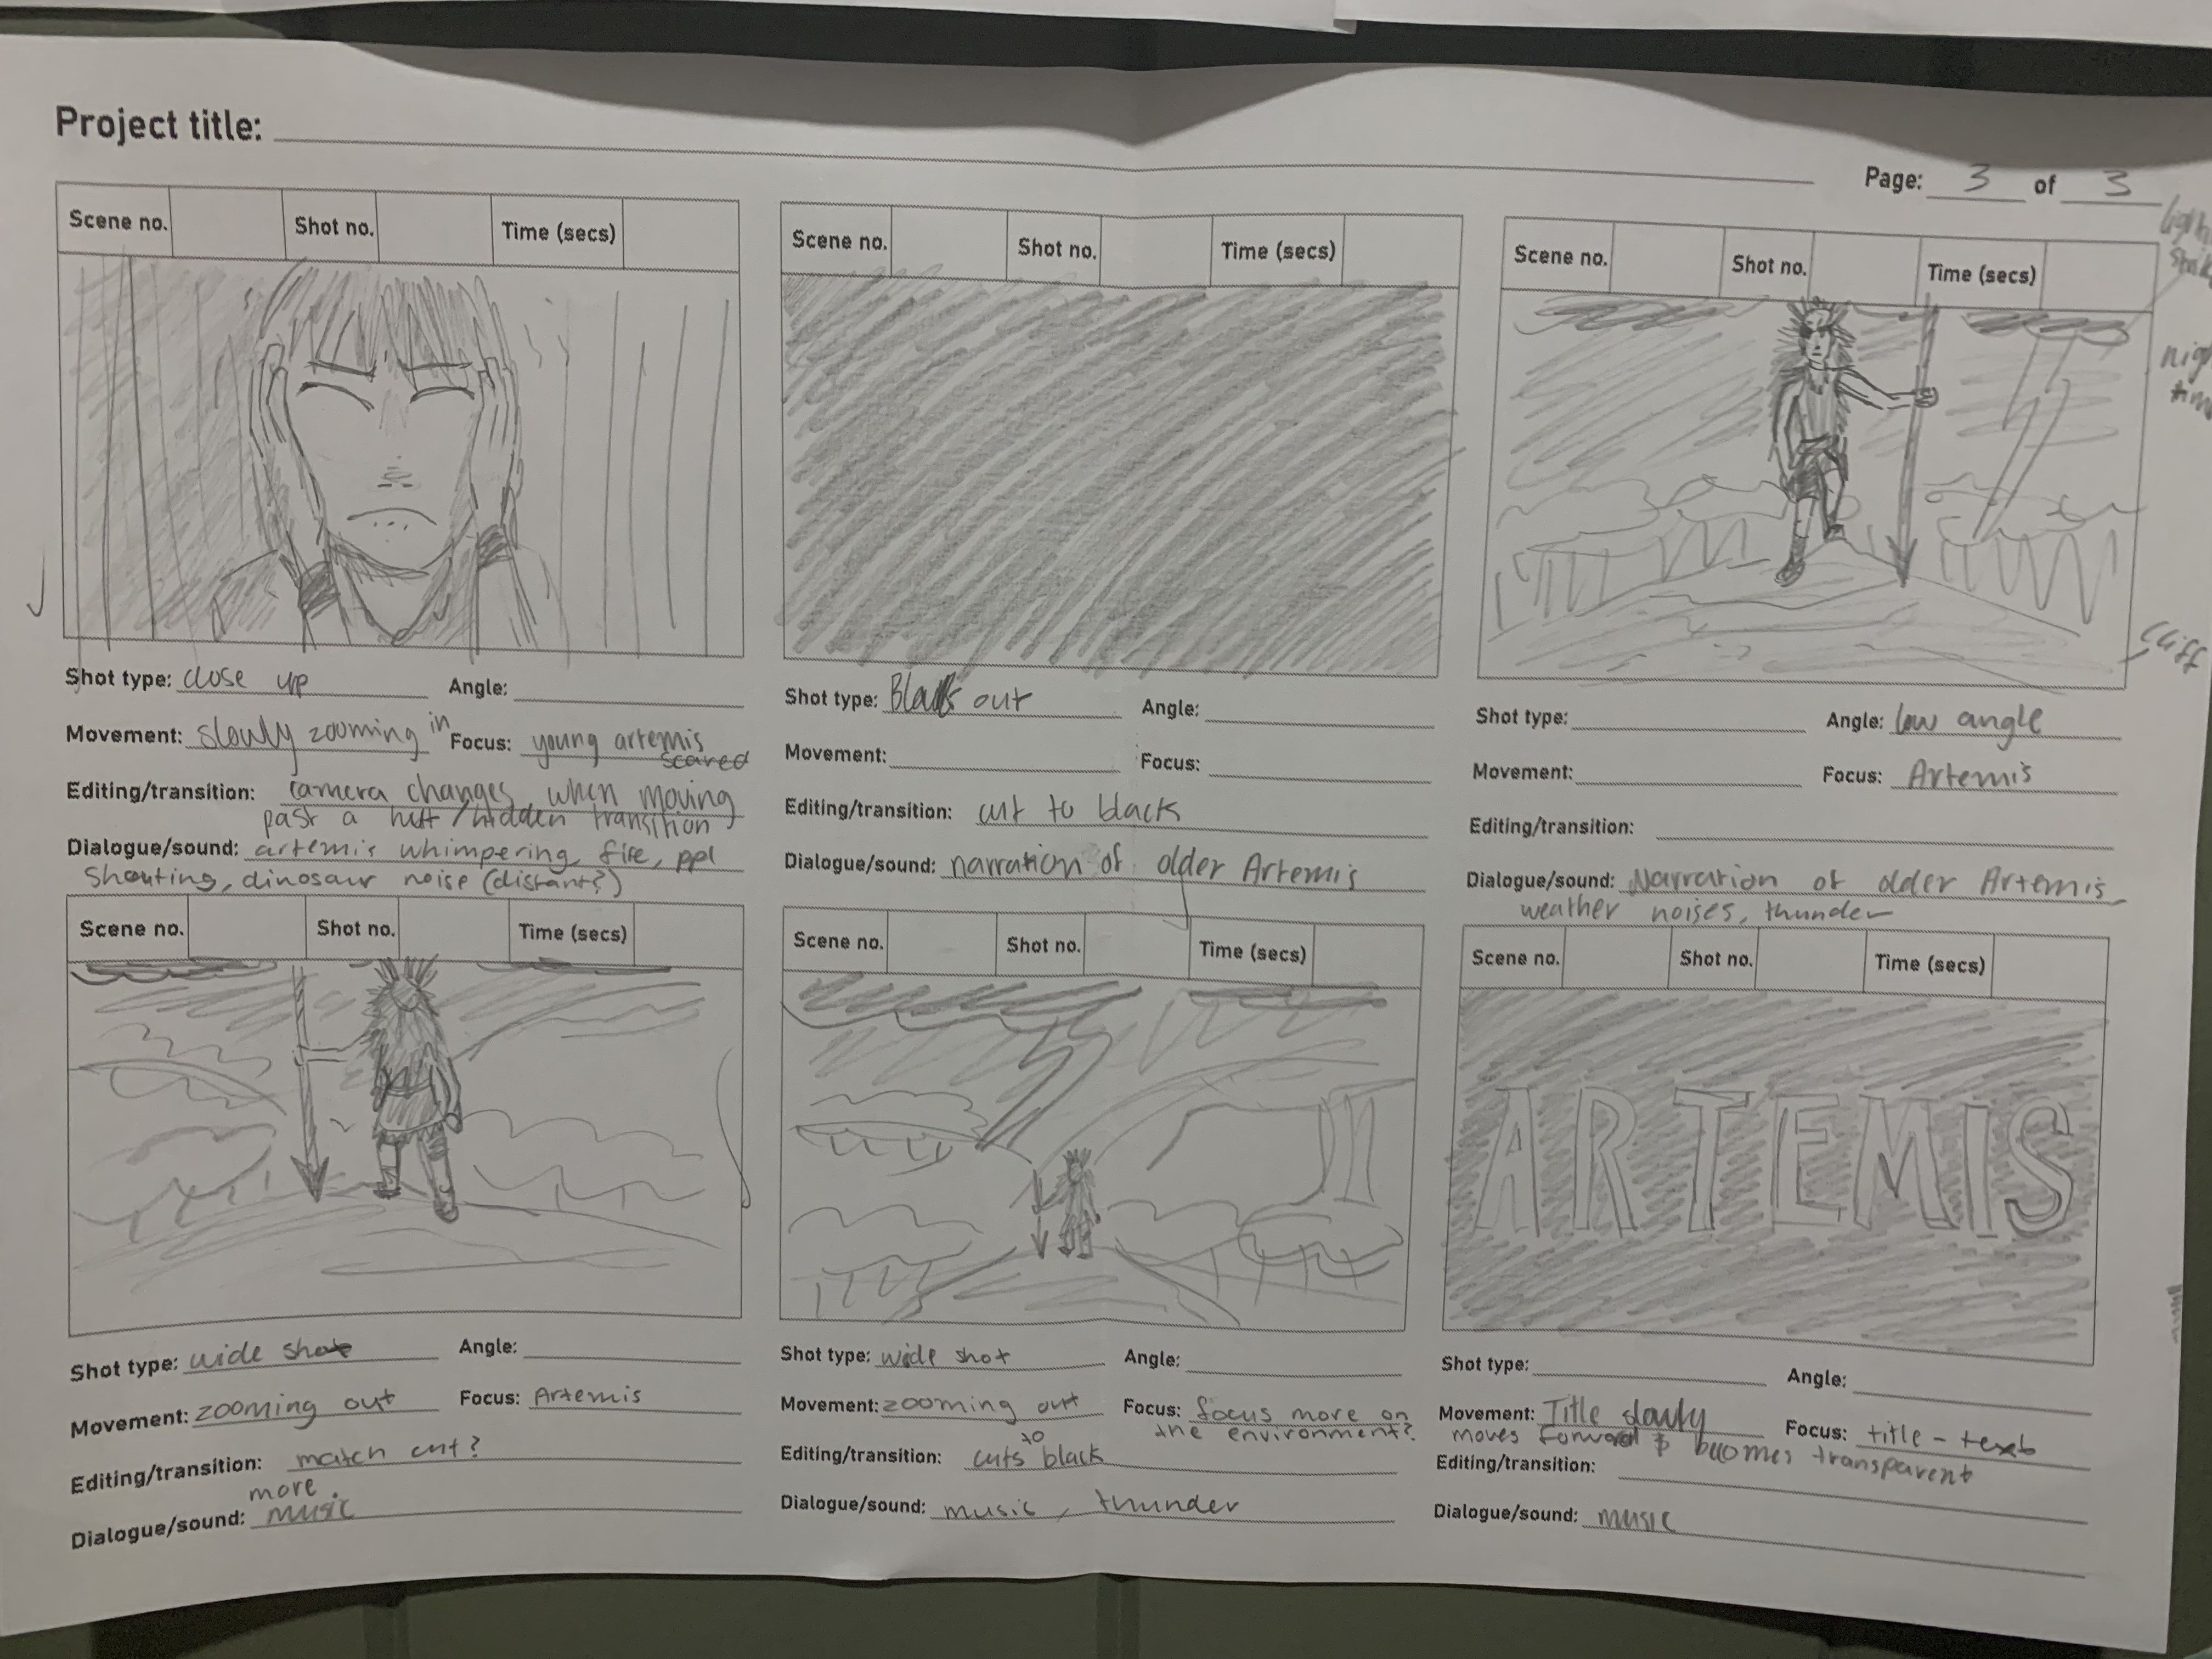 Project title:
Page: 3 of 3
Scene no. Shot no. Time (secs)
Shot type: close up Angle:
Movement: slowly zooming in Focus: young artemis
scared
Editing/transition: camera changes when moving
past a hutt/hidden transition
Dialogue/sound: artemis whimpering, fire, ppl
shouting, dinosaur noise (distant?)
Scene no. Shot no. Time (secs)
Shot type: Black out Angle:
Movement: Focus:
Editing/transition: cut to black
Dialogue/sound: narration of older Artemis
Scene no. Shot no. Time (secs)
night
time
cliff
Shot type: Angle: low angle
Movement: Focus: Artemis
Editing/transition:
Dialogue/sound: Narration of older Artemis
weather noises, thunder
Scene no. Shot no. Time (secs)
Shot type: wide shot Angle:
Movement: zooming out Focus: Artemis
Editing/transition: match cut?
more
Dialogue/sound: music
Scene no. Shot no. Time (secs)
Shot type: wide shot Angle:
Movement: zooming out Focus: focus more on
the environment?
Editing/transition: cuts to black
Dialogue/sound: music, thunder
Scene no. Shot no. Time (secs)
ARTEMIS
Shot type: Angle:
Movement: Title slowly Focus: title - text
moves forward & becomes transparent
Editing/transition:
Dialogue/sound: music